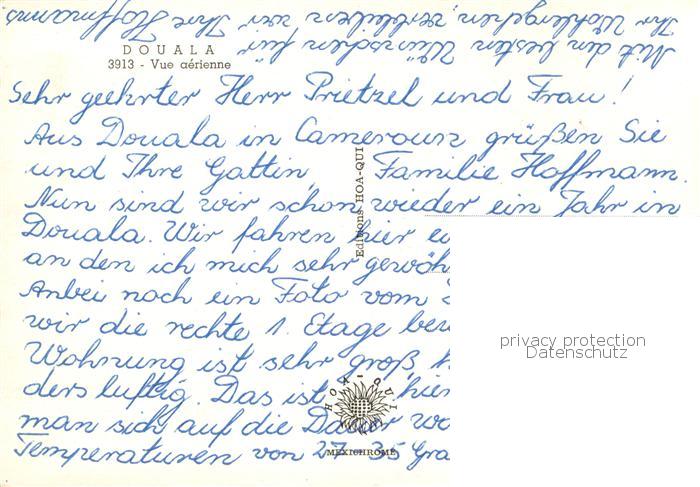 DOUALA
3913 - Vue aérienne
Sehr geehrter Herr Prietzel und Frau!
Aus Douala in Cameroun grüßen Sie
und Ihre Gattin, Familie Hoffmann.
Nun sind wir schon wieder ein Jahr in
Douala. Wir fahren hier ei
an den ich mich sehr gewöh
Anbei noch ein Foto vom
wir die rechte 1. Etage bew
Wohnung ist sehr groß,
ders luftig. Das ist hier
man sich auf die Dauer wo
Temperaturen von 27-35 Gra
Mit den besten Wünschen für
Ihr Wohlergehen, verbleiben wir Ihre Hoffmanns
Editions HOA-QUI
HOA-QUI
MEXICHROME
privacy protection
Datenschutz